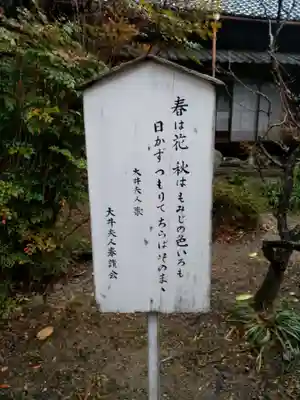 春は花 秋はもみじの色いろも
日かず つもりて ちらばそのまゝ
大井夫人 歌
大井夫人奉讃会